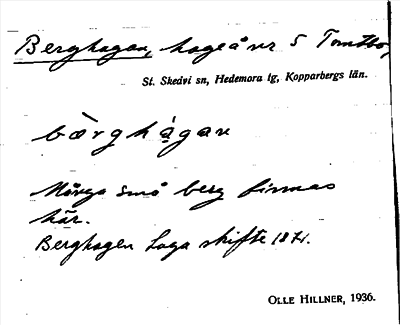 Berghagen, hage å nr 5 Tomtbo,
St. Skedvi sn, Hedemora tg, Kopparbergs län.
bæ̀rghágan
Många små berg finnas
här.
Berghagen Laga skifte 1871.
OLLE HILLNER, 1936.